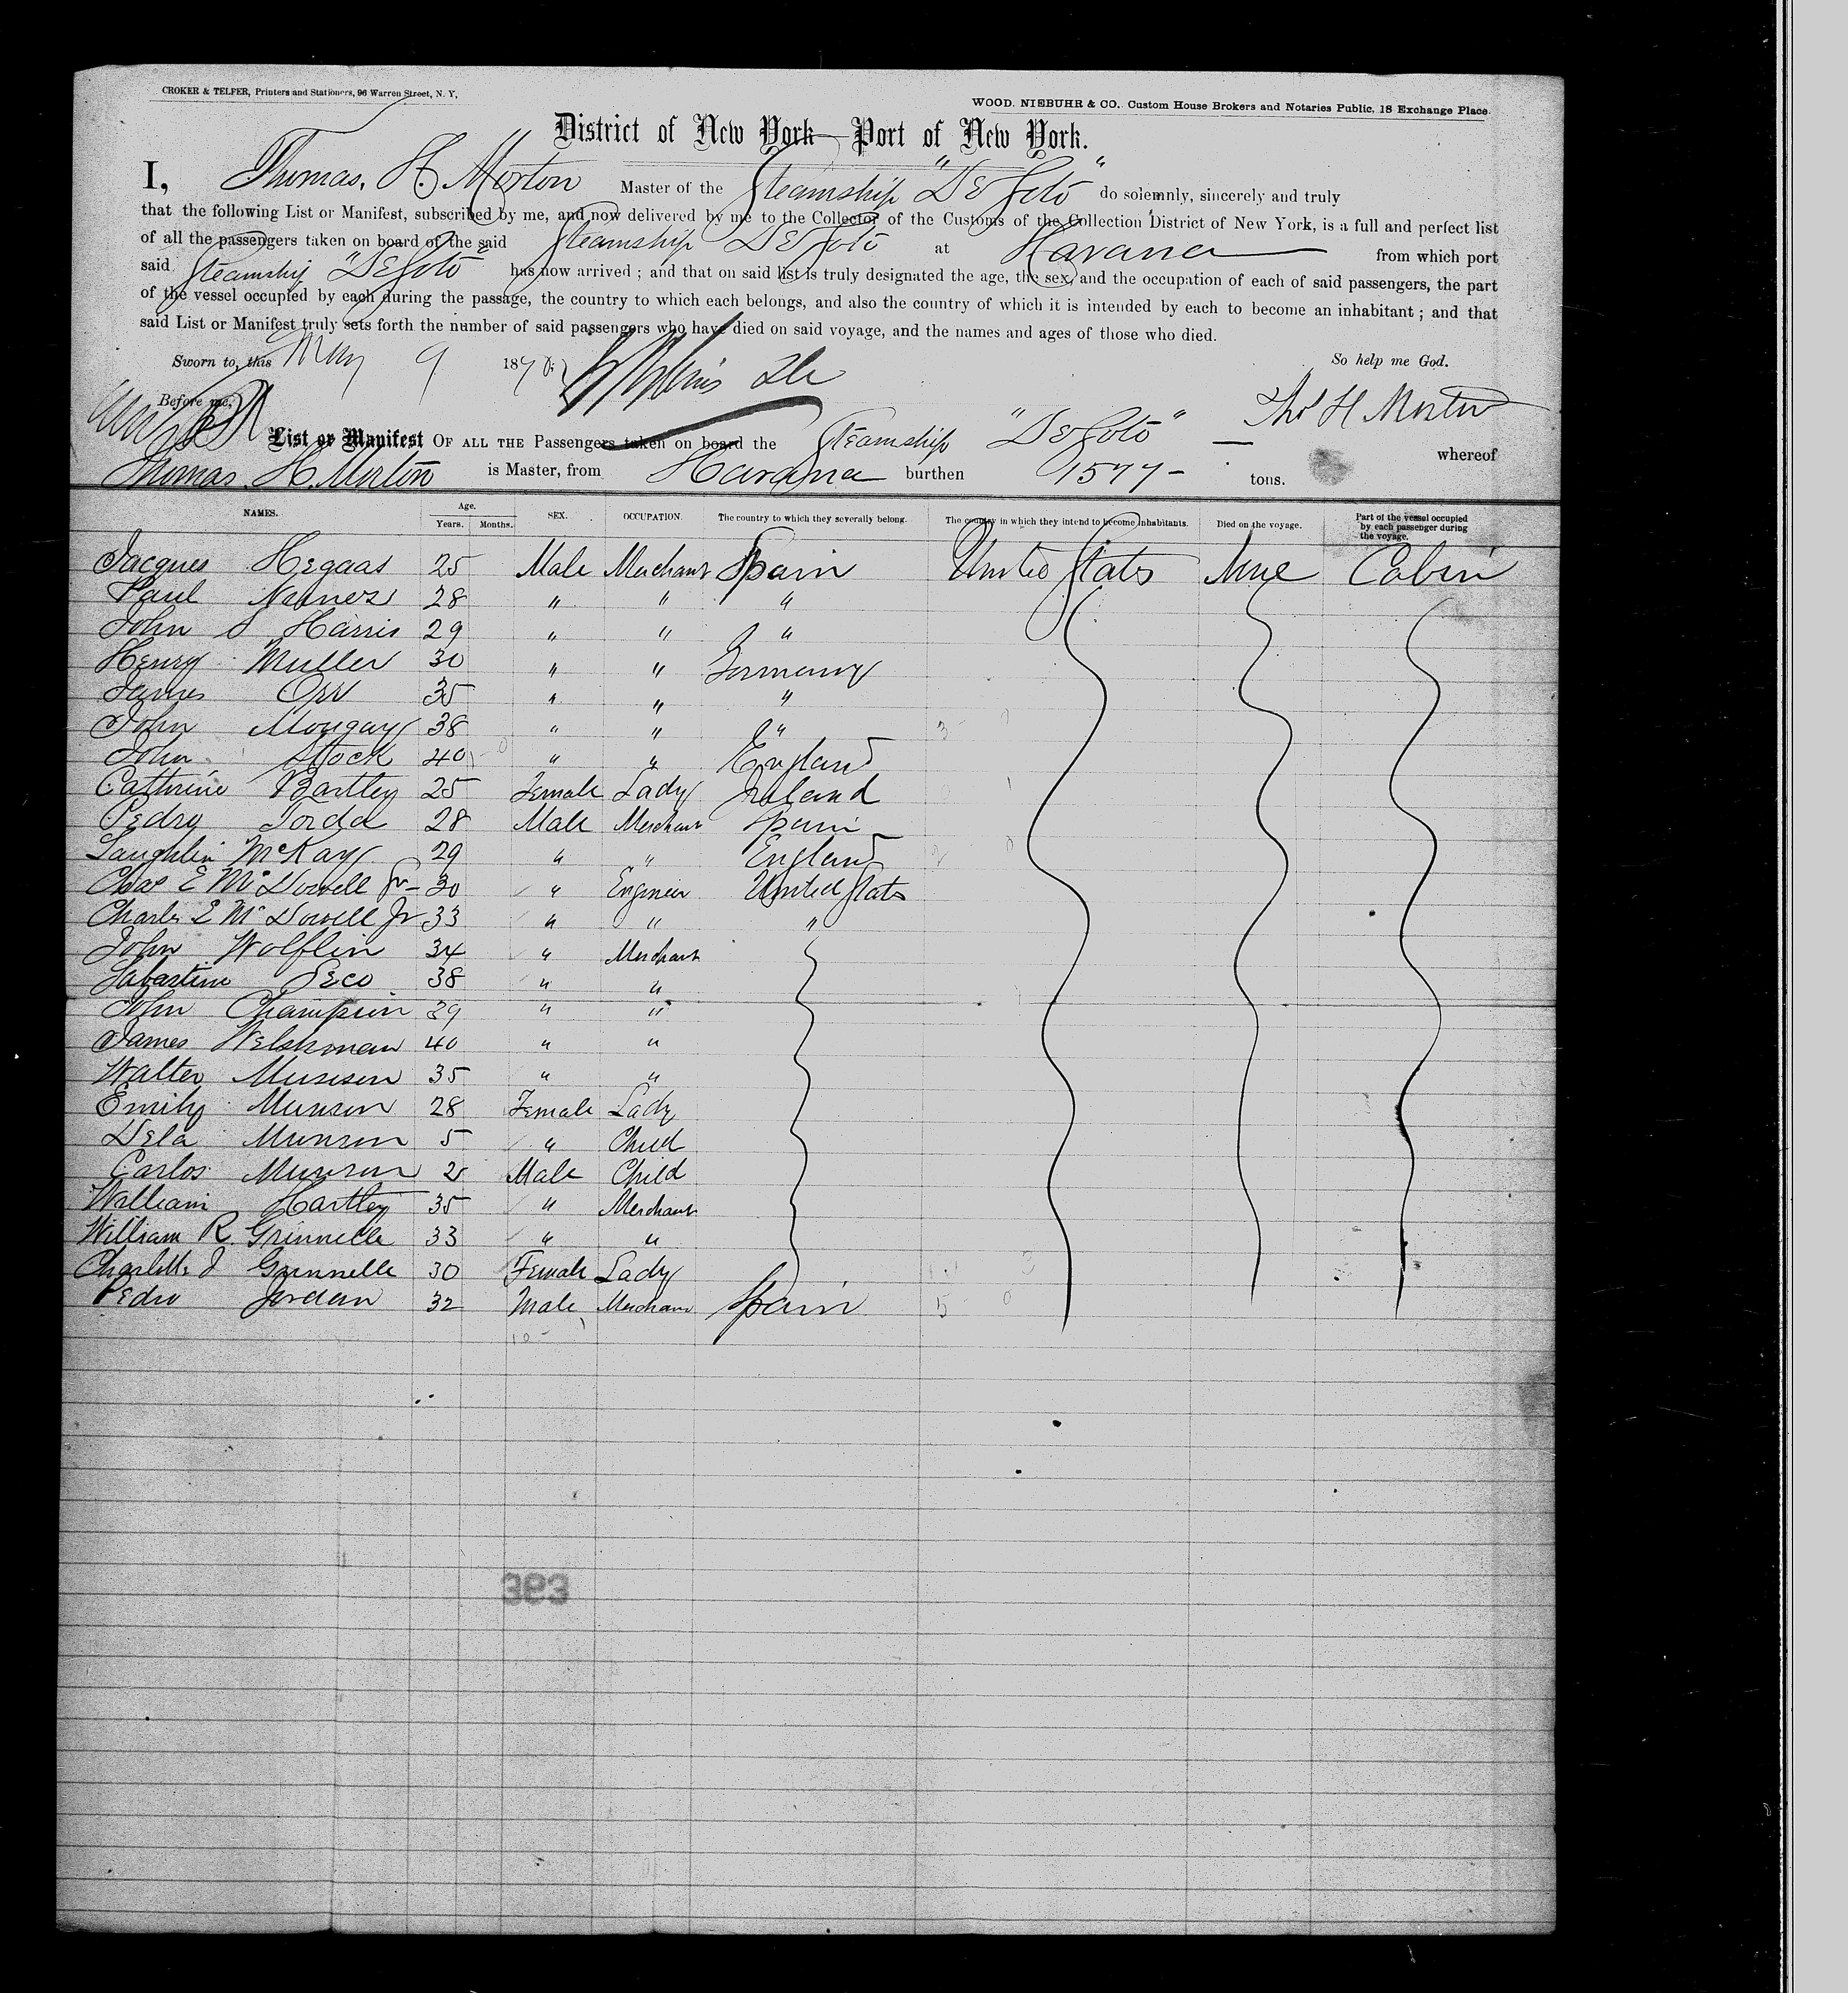 CROKER & TELFER, Printers and Stationers, 96 Warren Street, N. Y.
WOOD, NIEBUHR & CO., Custom House Brokers and Notaries Public, 18 Exchange Place.
District of New York—Port of New York.
I, Thomas. H. Morton Master of the Steamship "De Soto" do solemnly, sincerely and truly
that the following List or Manifest, subscribed by me, and now delivered by me to the Collector of the Customs of the Collection District of New York, is a full and perfect list
of all the passengers taken on board of the said Steamship De Soto at Havana from which port
said Steamship "De Soto" has now arrived ; and that on said list is truly designated the age, the sex, and the occupation of each of said passengers, the part
of the vessel occupied by each during the passage, the country to which each belongs, and also the country of which it is intended by each to become an inhabitant ; and that
said List or Manifest truly sets forth the number of said passengers who have died on said voyage, and the names and ages of those who died.
Sworn to, this May 9 1870 So help me God.
Before me, Thos H Morton
List or Manifest OF ALL THE Passengers taken on board the Steamship "De Soto" whereof
Thomas H. Morton is Master, from Havana burthen 1577 - tons.
NAMES. Age. Years. Months. SEX. OCCUPATION. The country to which they severally belong. The country in which they intend to become inhabitants. Died on the voyage. Part of the vessel occupied by each passenger during the voyage.
Jacques Hegaas 25 Male Merchant Spain United States None Cabin
Paul Nunes 28 " " "
John S Harris 29 " " "
Henry Muller 30 " " Germany
James Orr 35 " " "
John Mougay 38 " " "
John Stock 40 " " England
Cathrine Bartley 25 Female Lady Ireland
Pedro Jorda 28 Male Merchant Spain
Laughlin McKay 29 " " England
Chas E McDowell Jr - 30 " Engineer United States
Charls E McDowell Jr 33 " " "
John Wolflin 34 " Merchant
Sabartine Seco 38 " "
John Champion 39 " "
James Welshman 40 " "
Walter Munson 35 " "
Emily Munson 28 Female Lady
Dela Munson 5 " Child
Carlos Munson 2 Male Child
William Hartley 35 " Merchant
William R. Grinnelle 33 " "
Charlotte J Grinnelle 30 Female Lady
Pedro Jordan 32 Male Merchant Spain
393